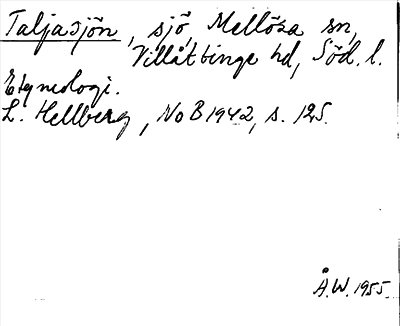 Taljasjön, sjö, Mellösa sn,
Villåttinge hd, Söd. l.
Etymologi.
L. Hellberg, NoB 1942, s. 125.
Å.W. 1955.